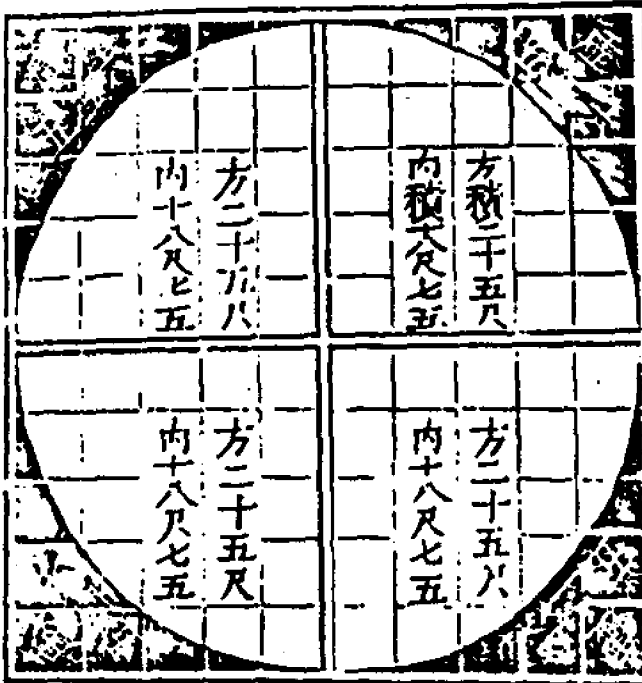 方積二十五尺
内積十八尺七五
方二十五尺
内十八尺七五
方二十五尺
内十八尺七五
方二十五尺
内十八尺七五